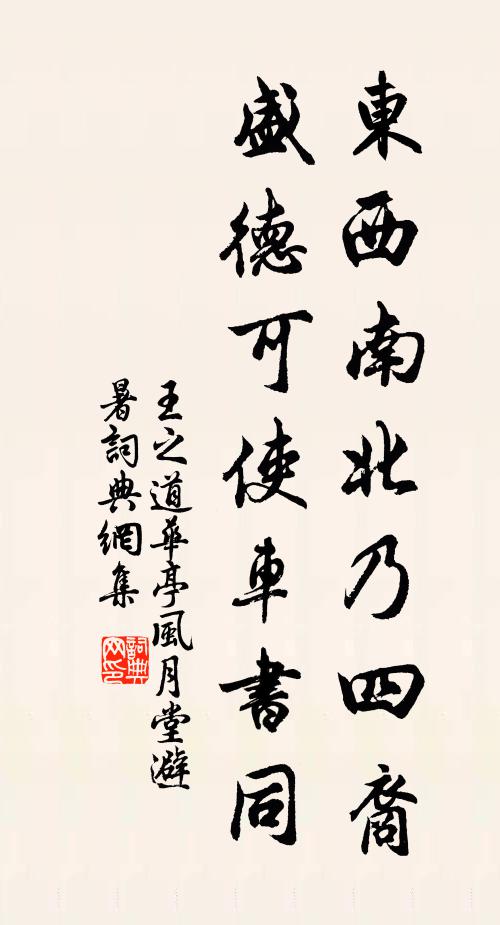 東西南北乃四裔
盛德可使車書同
王之道華亭風月堂避
暑詞典網集
詞典
网印